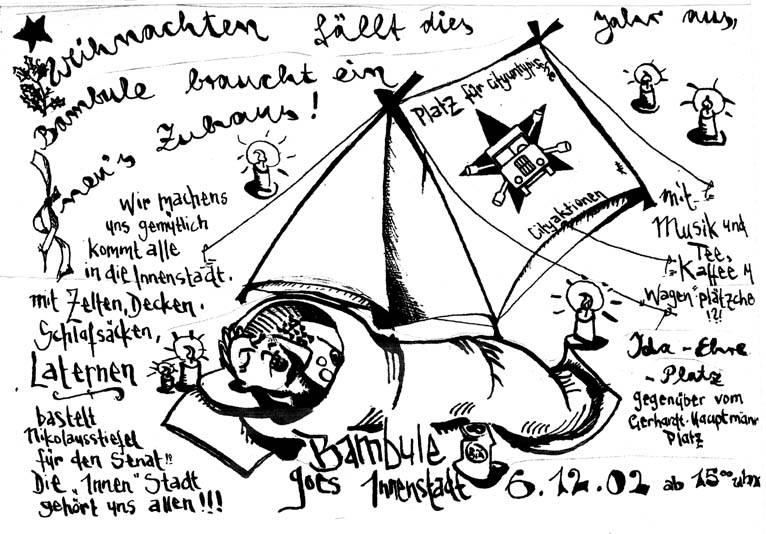 Weihnachten fällt dies Jahr aus,
Bambule braucht ein
neu's Zuhaus!
Wir machens
uns gemütlich
kommt alle
in die Innenstadt.
mit Zelten, Decken.
Schlafsäcken,
Laternen
bastelt
Nikolausstiefel
für den Senat!!
Die "Innen" Stadt
gehört uns allen!!!
Platz für cityuntypische
Cityaktionen
mit
Musik und
Tee,
Kaffee
"Wagen"plätzche
!?!
Ida-Ehre
-Platz
gegenüber vom
Gerhardt-Hauptmann
Platz
Bambule
goes Innenstadt
6.12.02 ab 15⁰⁰ uhr